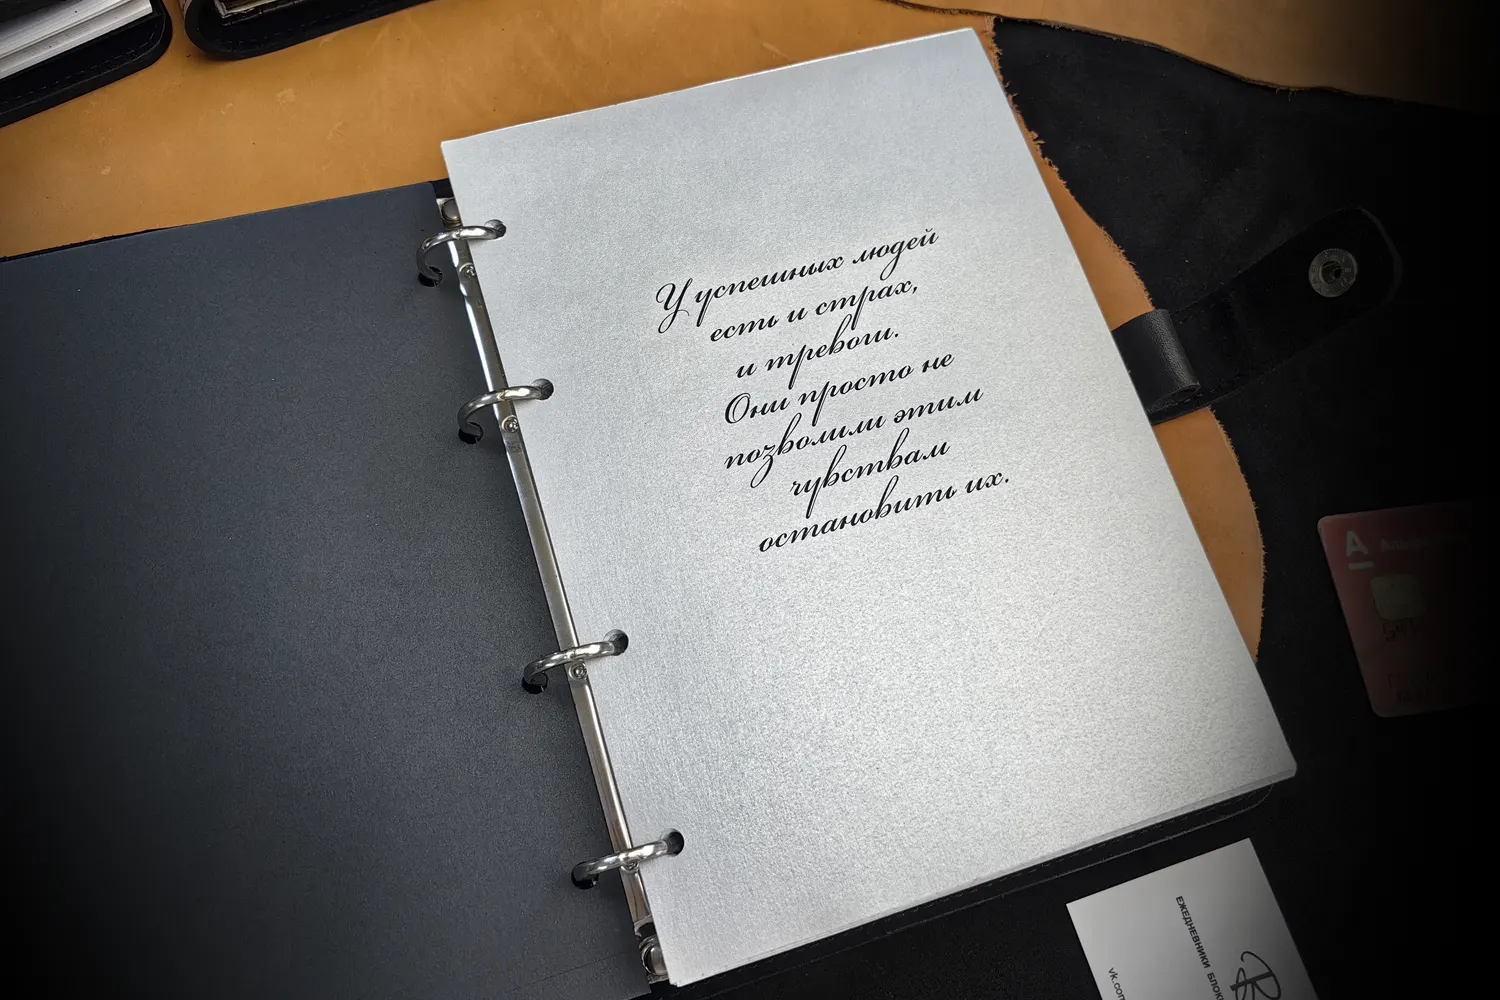 У успешных людей
есть и страх,
и тревоги.
Они просто не
позволили этим
чувствам
остановить их.
ЕЖЕДНЕВНИКИ
vk.com